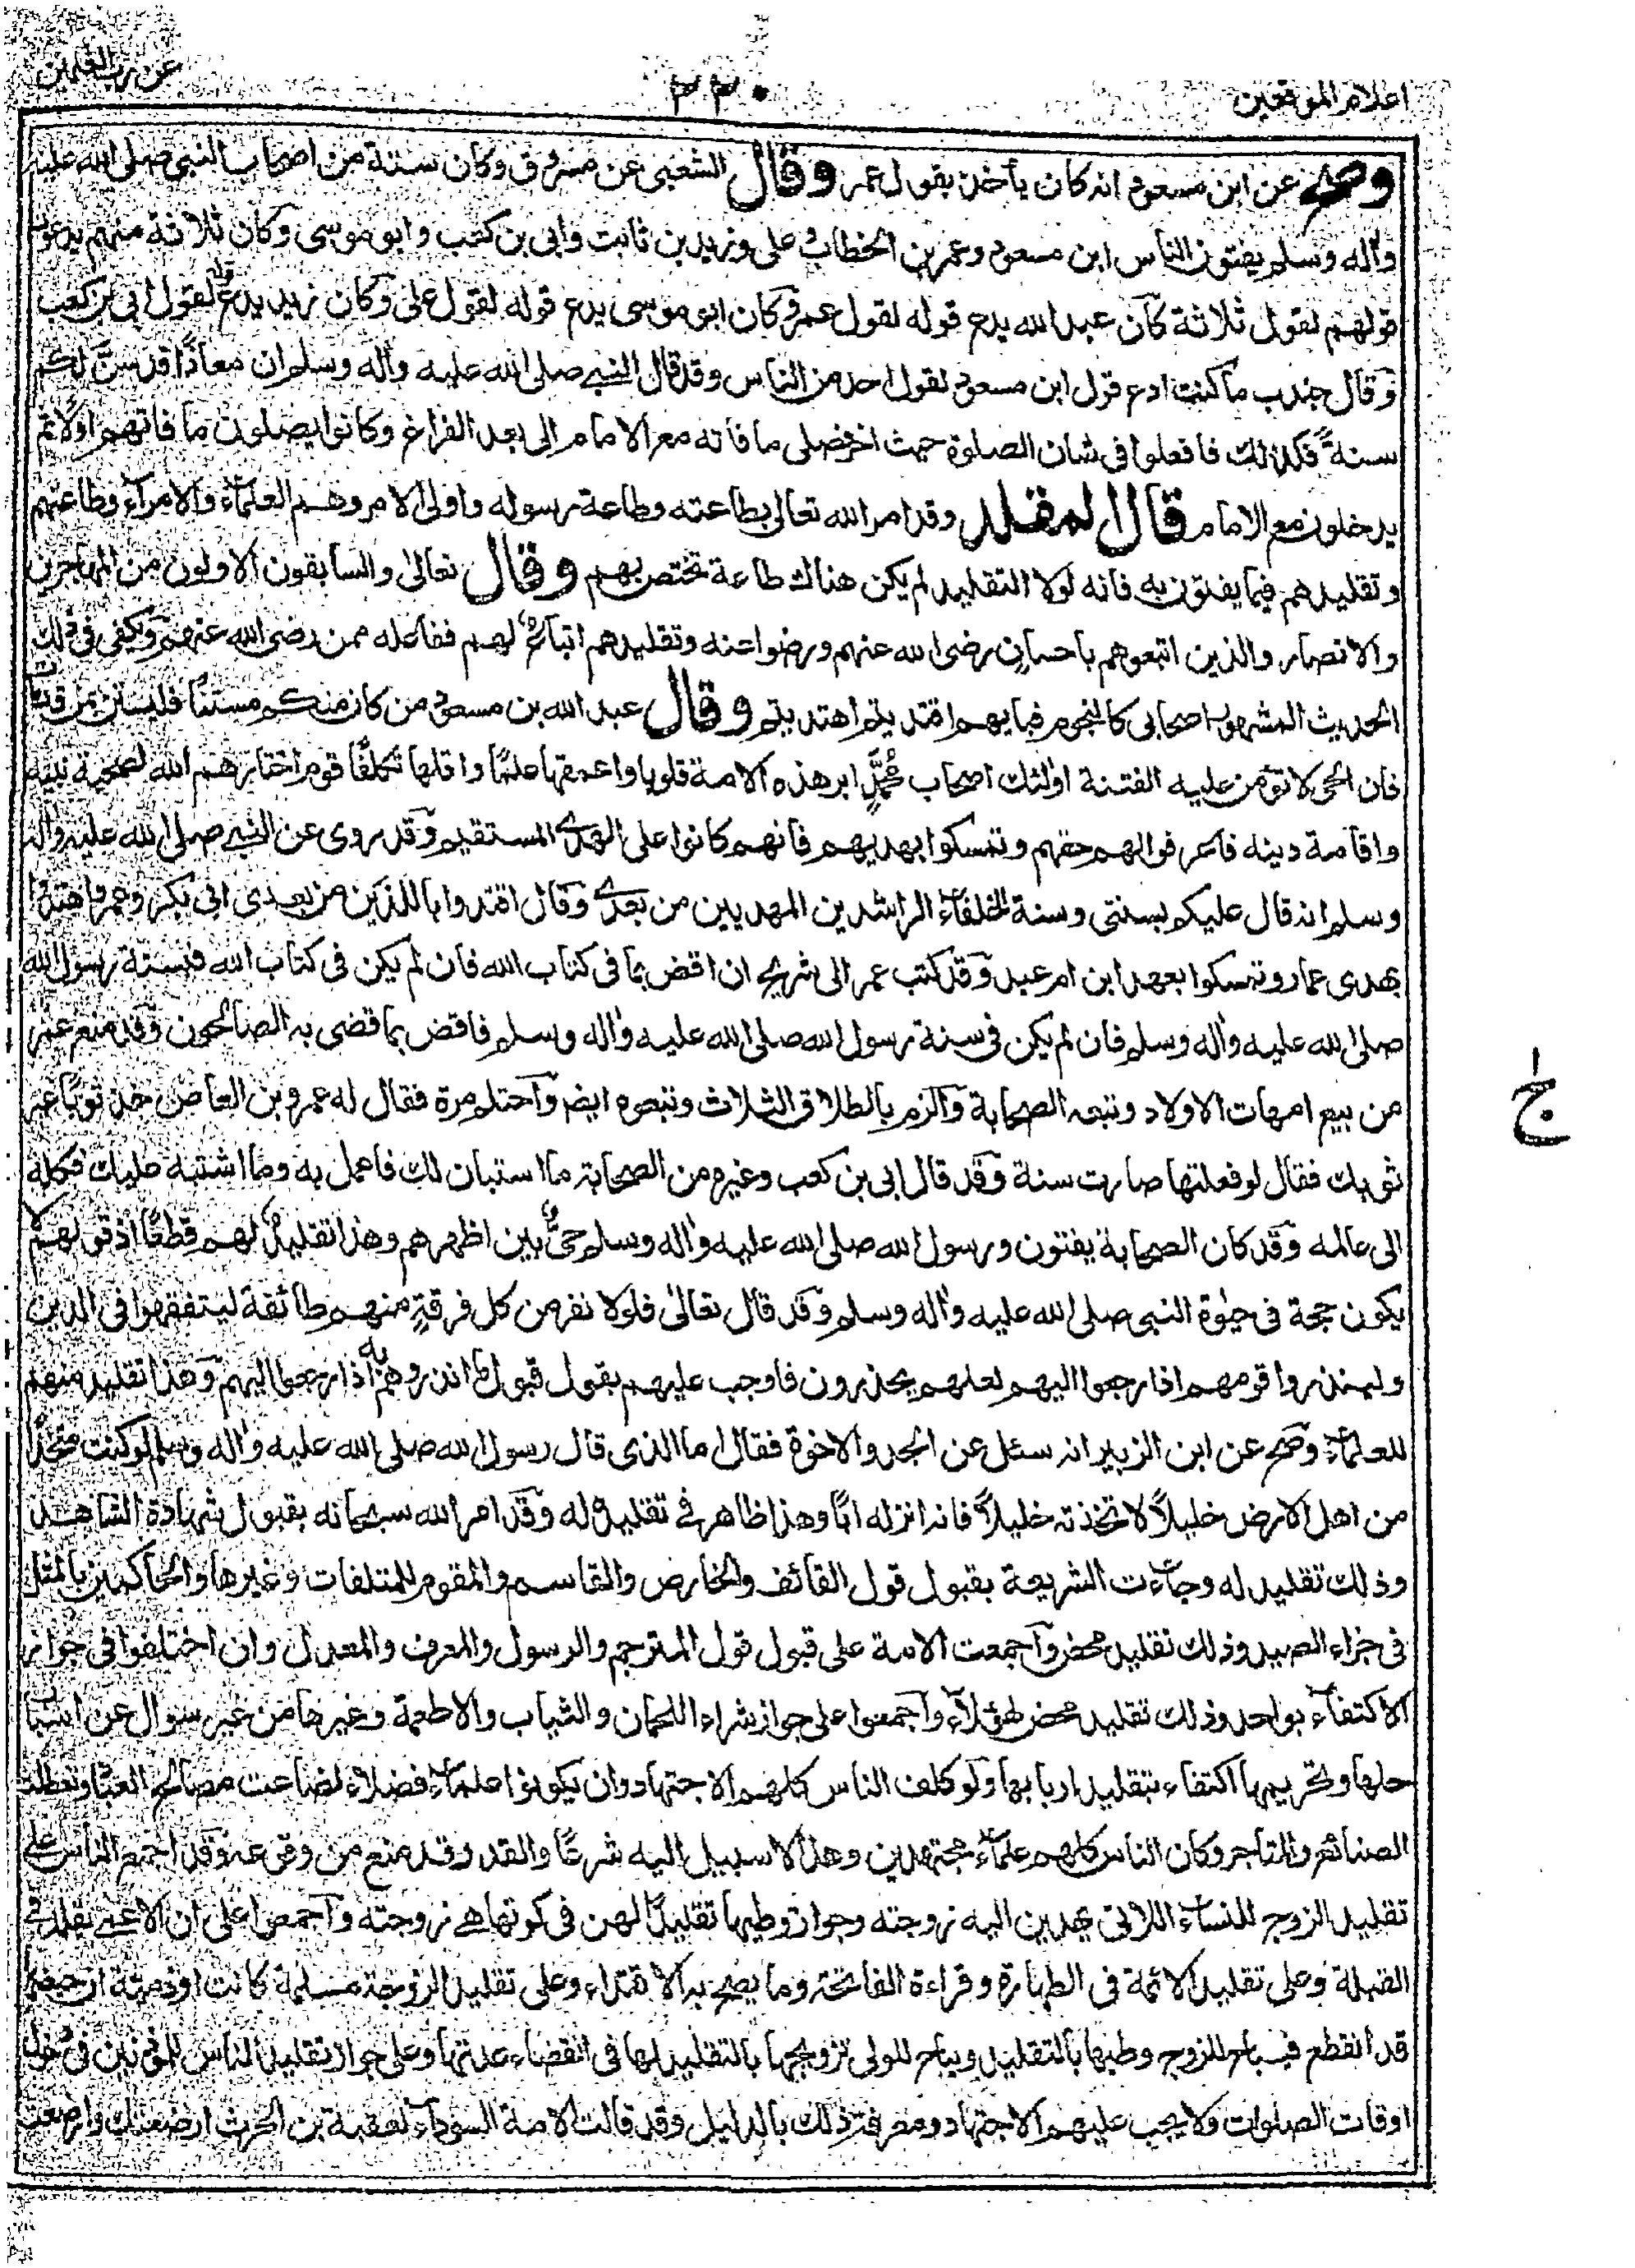 اعلام الموقعين
٣٣٠
عن رب العلمين
وصح عن ابن مسعود انه كان يأخذ بقول عمر وقال الشعبى عن مسروق وكان ستة من اصحاب النبى صلى الله عليه
واٰله وسلم يفتون الناس ابن مسعود وعمر بن الخطاب وعلى وزيد بن ثابت وابى بن كعب وابو موسى وكان ثلاثة منهم يدعون
قولهم لقول ثلاثة كان عبد الله يدع قوله لقول عمر وكان ابو موسى يدع قوله لقول على وكان زيد يدع قوله لقول ابى بن كعب
وقال جندب ما كنت ادع قول ابن مسعود لقول احد من الناس وقد قال النبى صلى الله عليه واٰله وسلم ان معاذًا قد سنّ لكم
سنةً فكذلك فافعلوا فى شان الصلوة حيث اخر فصلى ما فاته مع الامام الى بعد الفراغ وكانوا يصلون ما فاتهم اولًا ثم
يدخلون مع الامام قال المقلد وقد امر الله تعالى بطاعته وطاعة رسوله واولى الامر وهم العلماء والامراء وطاعتهم
وتقليدهم فيما يفتون به فانه لولا التقليد لم يكن هناك طاعة تختص بهم وقال تعالى والسابقون الاولون من المهاجرين
والانصار والذين اتبعوهم باحسانٍ رضى الله عنهم ورضوا عنه وتقليدهم اتباعٌ لهم ففاعله ممن رضى الله عنهم ويكفى فى ذلك
الحديث المشهور اصحابى كالنجوم فبايهم اقتديتم اهتديتم وقال عبد الله بن مسعود من كان منكم مستنًا فليستن بمن قد مات
فان الحى لا تؤمن عليه الفتنة اولٰئك اصحاب محمدٍ ابر هذه الامة قلوبا واعمقها علمًا واقلها تكلفًا قوم اختارهم الله لصحبة نبيه
واقامة دينه فاعرفوا لهم حقهم وتمسكوا بهديهم فانهم كانوا على الهدى المستقيم وقد روى عن النبى صلى الله عليه واٰله
وسلم انه قال عليكم بسنتى وسنة الخلفاء الراشدين المهديين من بعدى وقال اقتدوا باللذين من بعدى ابى بكر وعمر واهتدوا
بهدى عمار وتمسكوا بعهد ابن ام عبد وقد كتب عمر الى شريح ان اقض بما فى كتاب الله فان لم يكن فى كتاب الله فبسنة رسول الله
صلى الله عليه واٰله وسلم فان لم يكن فى سنة رسول الله صلى الله عليه واٰله وسلم فاقض بما قضى به الصالحون وقد منع عمر
من بيع امهات الاولاد وتبعه الصحابة والزم بالطلاق الثلاث وتبعوه ايضا واحتلم مرة فقال له عمرو بن العاص خذ ثوبًا غير
ثوبك فقال لو فعلتها صارت سنة وقد قال ابى بن كعب وغيره من الصحابة ما استبان لك فاعمل به وما اشتبه عليك فكله
الى عالمه وقد كان الصحابة يفتون ورسول الله صلى الله عليه واٰله وسلم حىٌّ بين اظهرهم وهذا تقليدٌ لهم قطعًا اذ قولهم لا
يكون حجة فى حيٰوة النبى صلى الله عليه واٰله وسلم وقد قال تعالىٰ فلولا نفر من كل فرقةٍ منهم طائفة ليتفقهوا فى الدين
ولينذروا قومهم اذا رجعوا اليهم لعلهم يحذرون فاوجب عليهم بقول قبول ما انذروهم به اذا رجعوا اليهم وهذا تقليد منهم
للعلماء وصح عن ابن الزبير انه سئل عن الجد والاخوة فقال اما الذى قال رسول الله صلى الله عليه واٰله وسلم لو كنت متخذًا
من اهل الارض خليلًا لاتخذته خليلًا فانه انزله ابًا وهذا ظاهر فى تقليده له وقد امر الله سبحانه بقبول شهادة الشاهد
وذلك تقليد له وجاءت الشريعة بقبول قول القائف والخارص والقاسم والمقوم للمتلفات وغيرها والحاكمين بالمثل
فى جزاء الصيد وذلك تقليد محض واجمعت الامة على قبول قول المترجم والرسول والمعرف والمعدل وان اختلفوا فى جواز
الاكتفاء بواحد وذلك تقليد محض لهؤلاء واجمعوا على جواز شراء اللحمان والثياب والاطعمة وغيرها من غير سوال عن اسباب
حلها وتحريمها اكتفاء بتقليد اربابها ولو كلف الناس كلهم الاجتهاد وان يكونوا علماء فضلاء لضاعت مصالح العباد وتعطلت
الصنائع والمتاجر وكان الناس كلهم علماء مجتهدين وهذا لا سبيل اليه شرعًا والقدر وقد منع من وقوعه وقد اجمع الناس على
تقليد الزوج للنساء اللاتى يهدين اليه زوجته وجواز وطيها تقليدًا لهن فى كونها هى زوجته واجمعوا على ان الاعمى يقلد فى
القبلة وعلى تقليد الائمة فى الطهارة وقراءة الفاتحة وما يصح به الاقتداء وعلى تقليد الزوجة مسلمة كانت او ذمية ان حيضها
قد انقطع فيباح للزوج وطيها بالتقليد ويباح للولى تزويجها بالتقليد لها فى انقضاء عدتها وعلى جواز تقليد الناس للمؤذنين فى دخول
اوقات الصلوات ولا يجب عليهم الاجتهاد ومعرفة ذلك بالدليل وقد قالت الامة السوداء لعقبة بن الحرث ارضعتك وارضعت
ج